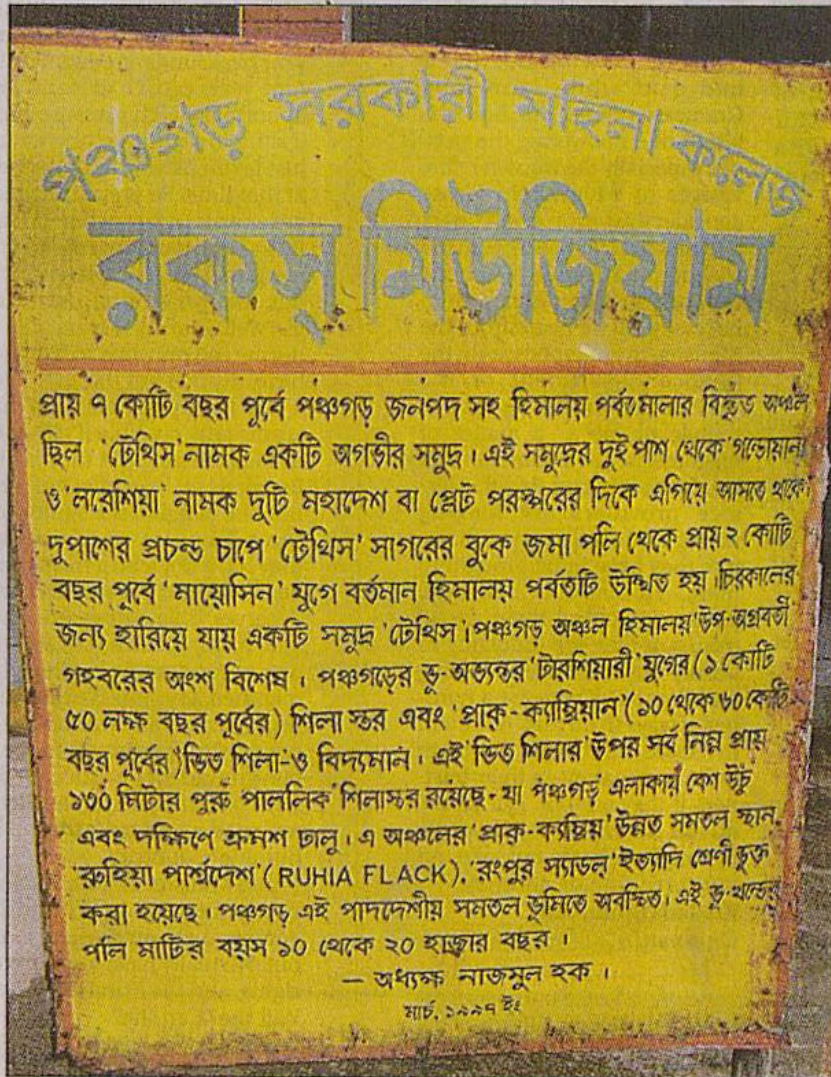 পঞ্চগড় সরকারী মহিলা কলেজ
রকস্ মিউজিয়াম
প্রায় ৭ কোটি বছর পূর্বে পঞ্চগড় জনপদ সহ হিমালয় পর্বতমালার বিস্তৃত অঞ্চল
ছিল 'টেথিস' নামক একটি অগভীর সমুদ্র। এই সমুদ্রের দুই পাশ থেকে 'গন্ডোয়ানা
ও 'লরেশিয়া' নামক দুটি মহাদেশ বা প্লেট পরস্পরের দিকে এগিয়ে আসতে থাকে।
দুপাশের প্রচন্ড চাপে 'টেথিস' সাগরের বুকে জমা পলি থেকে প্রায় ২ কোটি
বছর পূর্বে 'মায়োসিন' যুগে বর্তমান হিমালয় পর্বতটি উত্থিত হয়। চিরকালের
জন্য হারিয়ে যায় একটি সমুদ্র 'টেথিস'। পঞ্চগড় অঞ্চল হিমালয় 'উপ-অগ্রবর্তী
গহবরের অংশ বিশেষ। পঞ্চগড়ের ভূ-অভ্যন্তর 'টারশিয়ারী' যুগের (১ কোটি
৫০ লক্ষ বছর পূর্বের) শিলা স্তর এবং 'প্রাক্-ক্যাম্ব্রিয়ান' (১০ থেকে ৬০ কোটি
বছর পূর্বের) ভিত শিলা-ও বিদ্যমান। এই ভিত শিলার উপর সর্ব নিম্ন প্রায়
১৩০ মিটার পুরু পাললিক শিলাস্তর রয়েছে- যা পঞ্চগড় এলাকায় বেশ উঁচু
এবং দক্ষিণে ক্রমশ ঢালু। এ অঞ্চলের 'প্রাক্-ক্যাম্ব্রিয়' উন্নত সমতল স্থান,
'রুহিয়া পার্শ্বদেশ' (RUHIA FLACK), 'রংপুর স্যাডল' ইত্যাদি শ্রেণী ভুক্ত
করা হয়েছে। পঞ্চগড় এই পাদদেশীয় সমতল ভূমিতে অবস্থিত। এই ভূ-খন্ডের
পলি মাটির বয়স ১০ থেকে ২০ হাজার বছর।
— অধ্যক্ষ নাজমুল হক।
মার্চ, ১৯৯৭ ইং